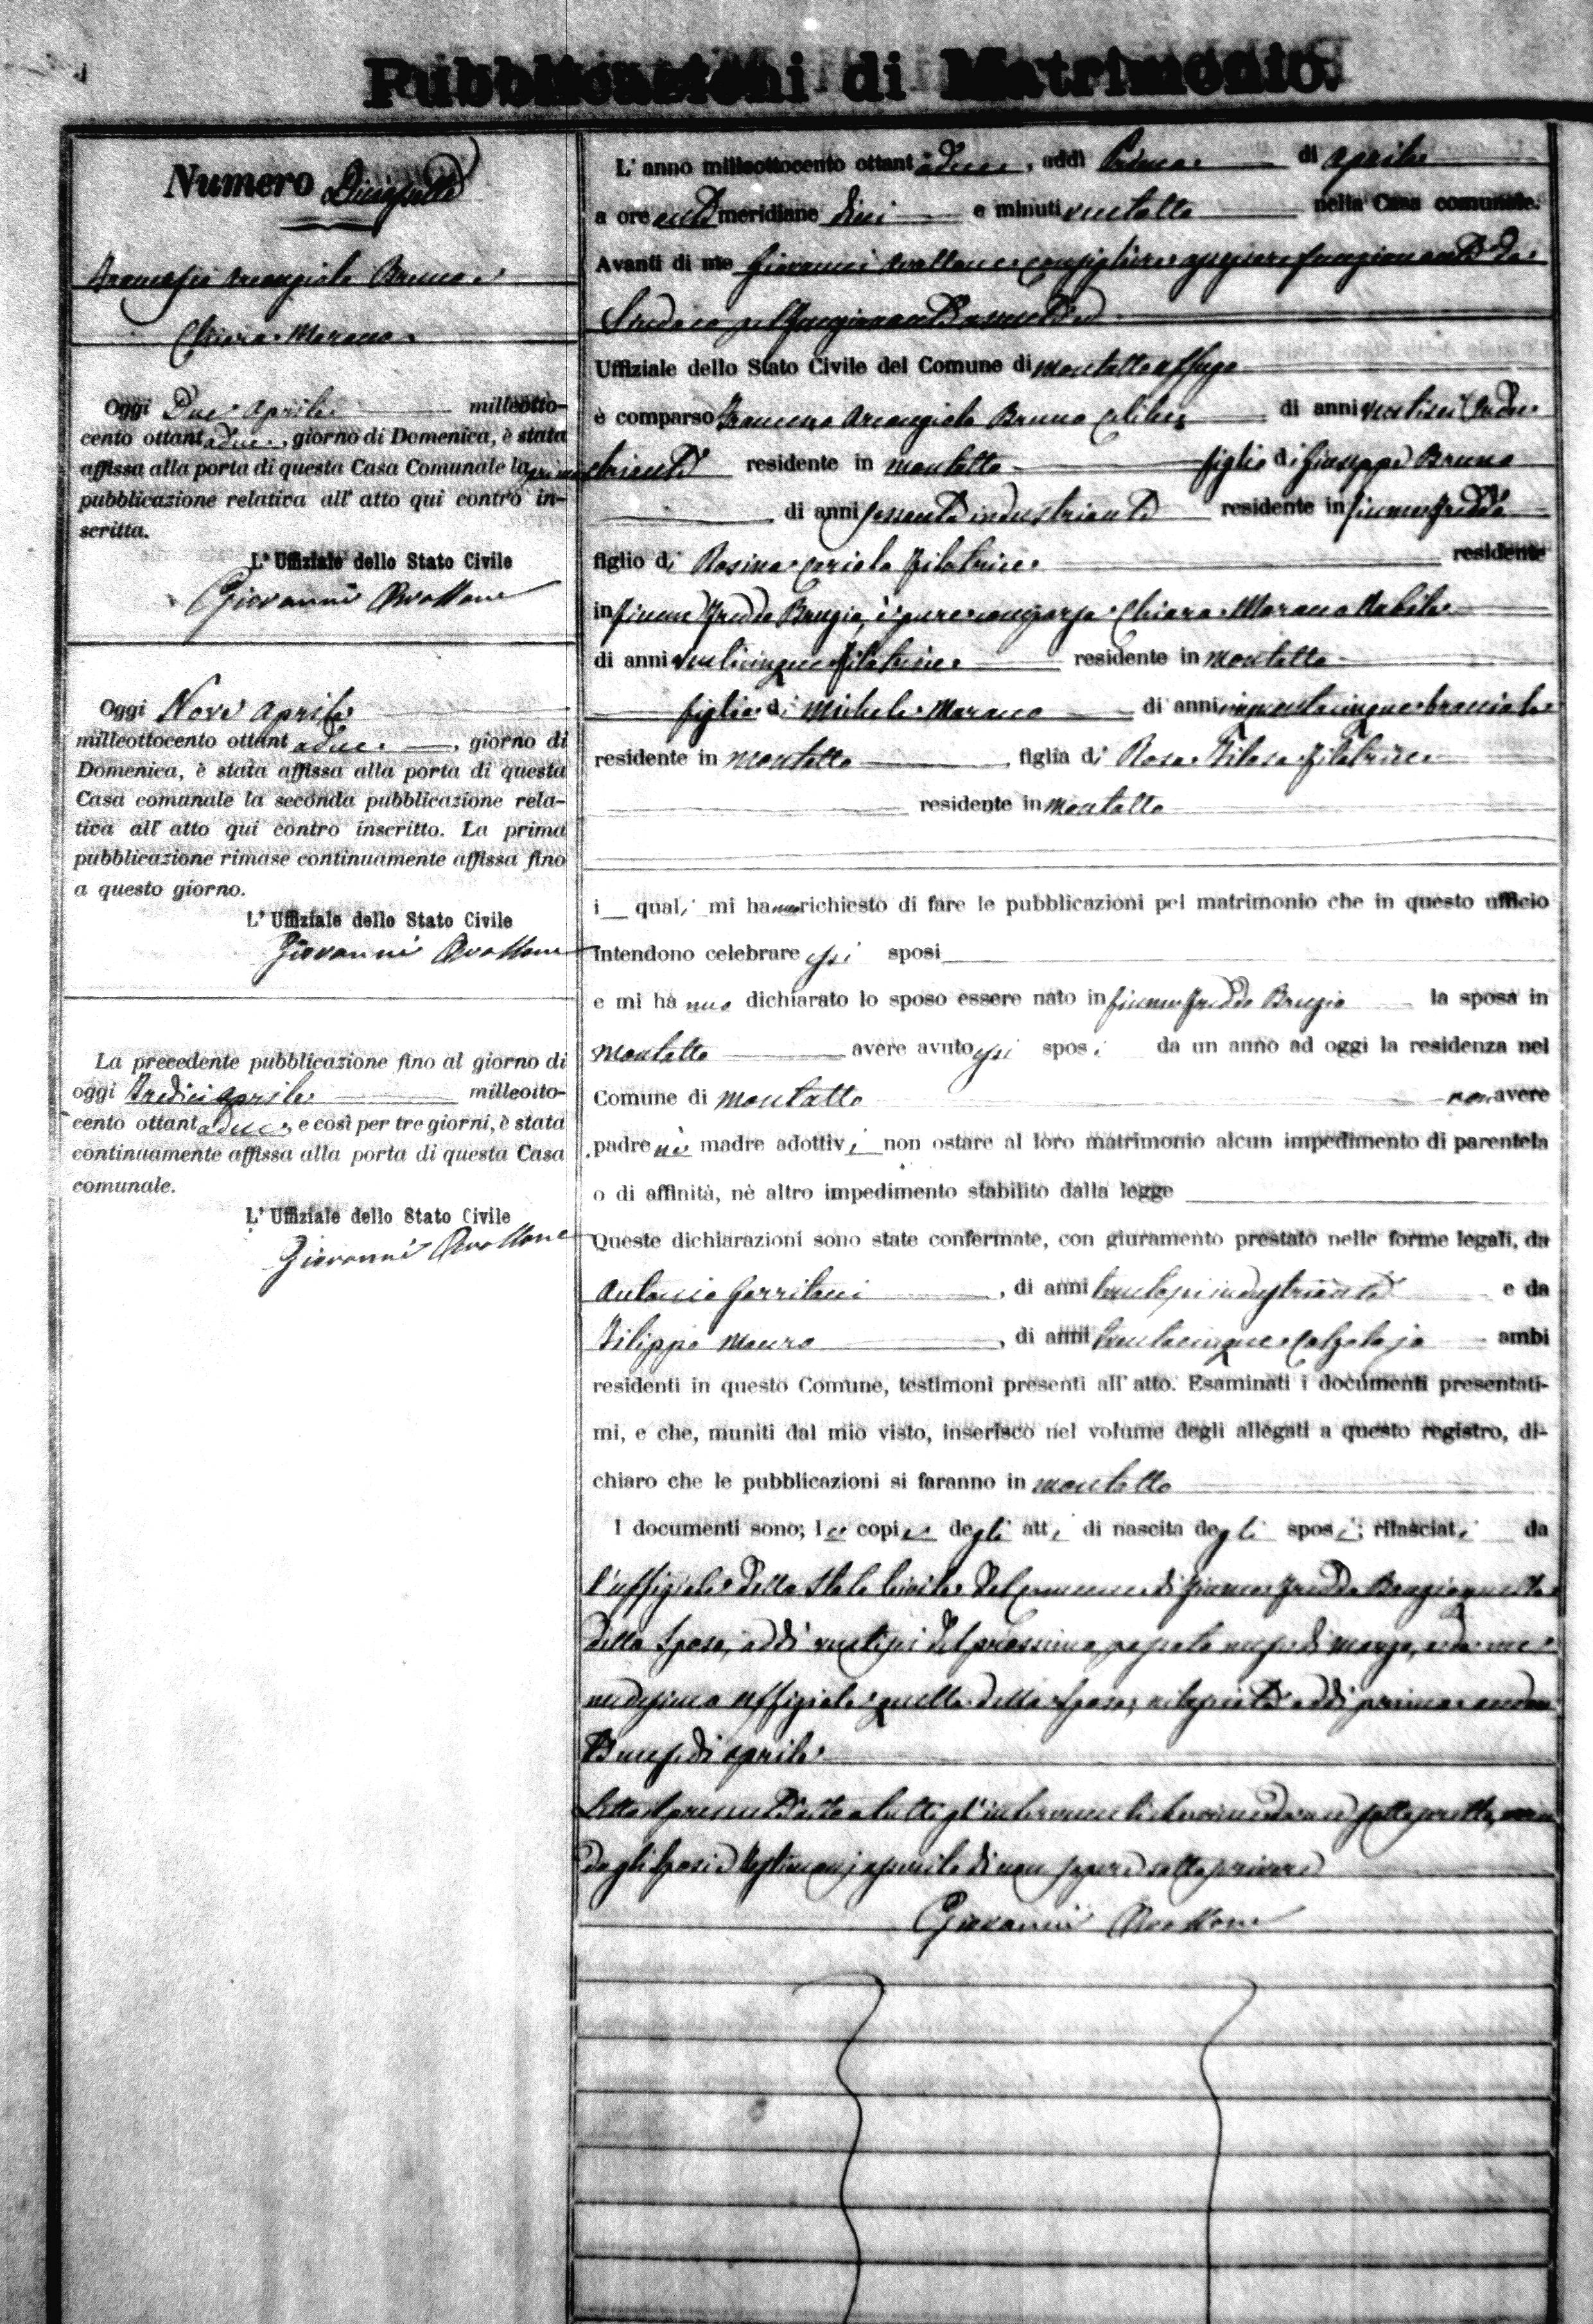 Pubblicazioni di Matrimonio.
Numero Diciassette
Francesco Arcangiolo Bruno e
Chiara Morano
Oggi Due Aprile milleotto-
cento ottantadue, giorno di Domenica, è stata
affissa alla porta di questa Casa Comunale la prima
pubblicazione relativa all' atto quì contro in-
scritta.
L' Uffiziale dello Stato Civile
Giovanni Avallone
Oggi Nove Aprile
milleottocento ottantadue, giorno di
Domenica, è stata affissa alla porta di questa
Casa comunale la seconda pubblicazione rela-
tiva all' atto qui contro inscritto. La prima
pubblicazione rimase continuamente affissa fino
a questo giorno.
L' Uffiziale dello Stato Civile
Giovanni Avallone
La precedente pubblicazione fino al giorno di
oggi Tredici Aprile milleotto-
cento ottantadue, e così per tre giorni, è stata
continuamente affissa alla porta di questa Casa
comunale.
L' Uffiziale dello Stato Civile
Giovanni Avallone
L' anno milleottocento ottantadue, addì Primo di Aprile
a ore anti meridiane dieci e minuti ventotto nella Casa comunale.
Avanti di me Giovanni Avallone consigliere anziano funzionante da
Sindaco
Uffiziale dello Stato Civile del Comune di Montalto Uffugo
è comparso Francesco Arcangiolo Bruno celibe di anni ventisei
residente in Montalto figlio di Giuseppe Bruno
di anni sessanta industriante residente in Fiumefreddo
figlio di Rosina Cariolo filatrice residente
in Fiumefreddo Bruzio, è pure comparsa Chiara Morano nubile
di anni venticinque filatrice residente in Montalto
figlia di Michele Morano di anni cinquantacinque bracciale
residente in Montalto, figlia di Rosa filatrice
residente in Montalto
i quali mi hanno richiesto di fare le pubblicazioni pel matrimonio che in questo ufficio
intendono celebrare essi sposi
e mi hanno dichiarato lo sposo essere nato in Fiumefreddo Bruzio la sposa in
Montalto avere avuto essi sposi da un anno ad oggi la residenza nel
Comune di Montalto non avere
padre nè madre adottivi non ostare al loro matrimonio alcun impedimento di parentela
o di affinità, nè altro impedimento stabilito dalla legge
Queste dichiarazioni sono state confermate, con giuramento prestato nelle forme legali, da
Antonio Garritani, di anni trentasei industriante e da
Filippo Mauro, di anni trentacinque Calzolajo ambi
residenti in questo Comune, testimoni presenti all' atto. Esaminati i documenti presentati-
mi, e che, muniti dal mio visto, inserisco nel volume degli allegati a questo registro, di-
chiaro che le pubblicazioni si faranno in Montalto
I documenti sono; le copie degli atti di nascita degli sposi; rilasciati da
l'uffiziale dello Stato Civile del Comune di Fiumefreddo Bruzio quella
dello sposo, addì ventisei del prossimo passato mese di Marzo, e da me
medesimo uffiziale quella della sposa, rilasciata addì primo andan
te mese di Aprile
Letto il presente atto a tutti gl'intervenuti
dagli sposi e testimonj asserito di non sapere sottoscrivere
Giovanni Avallone